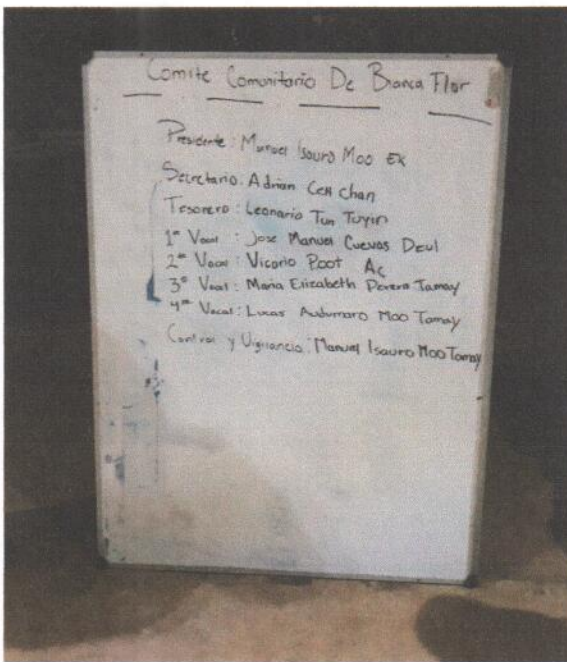 Comite Comunitario De Blanca Flor
Presidente: Manuel Isauro Moo EK
Secretario: Adrian Ceh Chan
Tesorero: Leonario Tun Tuyin
1er Vocal: Jose Manuel Cuevas Deul
2do Vocal: Vicario Poot Ac
3er Vocal: Maria Elizabeth Perera Tamay
4to Vocal: Lucas Audumaro Moo Tamay
Control y Vigilancia: Manuel Isauro Moo Tamay